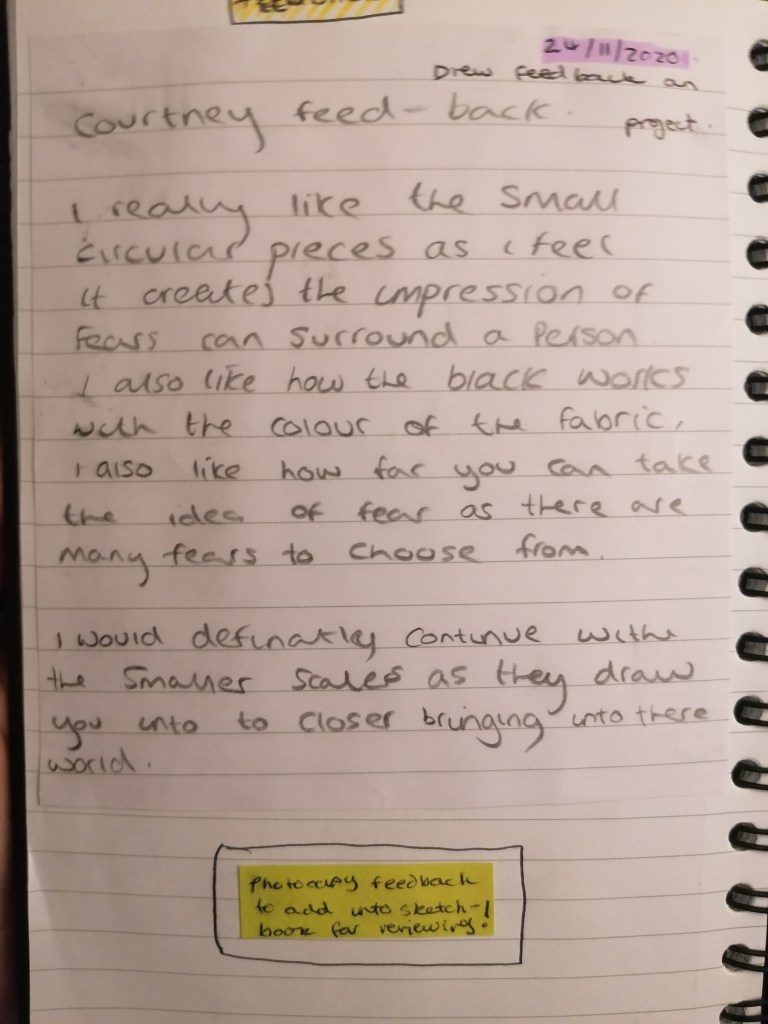 24/11/2020
Drew feedback on
project.
Courtney feed-back.
I really like the small
circular pieces as i feel
it creates the impression of
fears can surround a person
I also like how the black works
with the colour of the fabric,
i also like how far you can take
the idea of fear as there are
many fears to choose from.
I would definatly continue withe
the smaller scales as they draw
you into to closer bringing into there
world.
Photocopy feedback
to add into sketch-
book for reviewing!